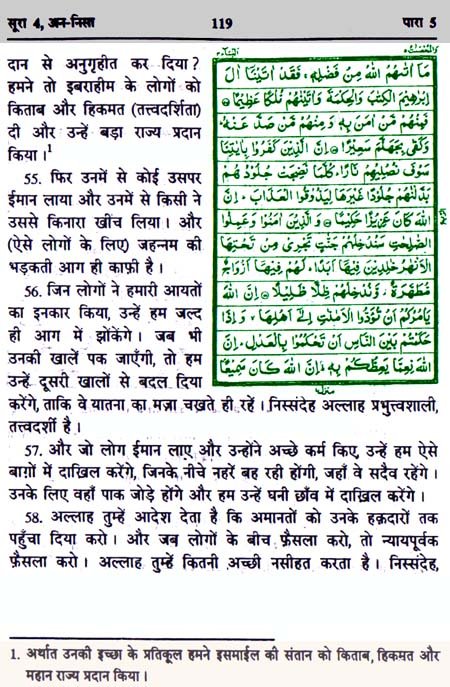 सूरा 4, अन-निसा 119 पारा 5
दान से अनुगृहीत कर दिया?
हमने तो इबराहीम के लोगों को
किताब और हिकमत (तत्त्वदर्शिता)
दी और उन्हें बड़ा राज्य प्रदान
किया।¹
55. फिर उनमें से कोई उसपर
ईमान लाया और उनमें से किसी ने
उससे किनारा खींच लिया। और
(ऐसे लोगों के लिए) जहन्नम की
भड़कती आग ही काफ़ी है।
56. जिन लोगों ने हमारी आयतों
का इनकार किया, उन्हें हम जल्द
ही आग में झोंकेंगे। जब भी
उनकी खालें पक जाएँगी, तो हम
उन्हें दूसरी खालों से बदल दिया
مَآ اٰتٰىهُمُ اللهُ مِنْ فَضْلِهٖ ۚ فَقَدْ اٰتَيْنَآ اٰلَ
اِبْرٰهِيْمَ الْكِتٰبَ وَالْحِكْمَةَ وَاٰتَيْنٰهُمْ مُّلْكًا عَظِيْمًا
فَمِنْهُمْ مَّنْ اٰمَنَ بِهٖ وَمِنْهُمْ مَّنْ صَدَّ عَنْهُ ؕ
وَكَفٰى بِجَهَنَّمَ سَعِيْرًا اِنَّ الَّذِيْنَ كَفَرُوْا بِاٰيٰتِنَا
سَوْفَ نُصْلِيْهِمْ نَارًا ؕ كُلَّمَا نَضِجَتْ جُلُوْدُهُمْ
بَدَّلْنٰهُمْ جُلُوْدًا غَيْرَهَا لِيَذُوْقُوا الْعَذَابَ ؕ اِنَّ
اللهَ كَانَ عَزِيْزًا حَكِيْمًا وَالَّذِيْنَ اٰمَنُوْا وَعَمِلُوا
الصّٰلِحٰتِ سَنُدْخِلُهُمْ جَنّٰتٍ تَجْرِيْ مِنْ تَحْتِهَا
الْاَنْهٰرُ خٰلِدِيْنَ فِيْهَآ اَبَدًا ؕ لَهُمْ فِيْهَآ اَزْوَاجٌ
مُّطَهَّرَةٌ ۫ وَّنُدْخِلُهُمْ ظِلًّا ظَلِيْلًا اِنَّ اللهَ
يَاْمُرُكُمْ اَنْ تُؤَدُّوا الْاَمٰنٰتِ اِلٰٓى اَهْلِهَا ۙ وَاِذَا
حَكَمْتُمْ بَيْنَ النَّاسِ اَنْ تَحْكُمُوْا بِالْعَدْلِ ؕ اِنَّ
اللهَ نِعِمَّا يَعِظُكُمْ بِهٖ ؕ اِنَّ اللهَ كَانَ سَمِيْعًۢا
करेंगे, ताकि वे यातना का मज़ा चखते ही रहें। निस्संदेह अल्लाह प्रभुत्त्वशाली,
तत्त्वदर्शी है।
57. और जो लोग ईमान लाए और उन्होंने अच्छे कर्म किए, उन्हें हम ऐसे
बाग़ों में दाख़िल करेंगे, जिनके नीचे नहरें बह रही होंगी, जहाँ वे सदैव रहेंगे।
उनके लिए वहाँ पाक जोड़े होंगे और हम उन्हें घनी छाँव में दाख़िल करेंगे।
58. अल्लाह तुम्हें आदेश देता है कि अमानतों को उनके हक़दारों तक
पहुँचा दिया करो। और जब लोगों के बीच फ़ैसला करो, तो न्यायपूर्वक
फ़ैसला करो। अल्लाह तुम्हें कितनी अच्छी नसीहत करता है। निस्संदेह,
1. अर्थात उनकी इच्छा के प्रतिकूल हमने इसमाईल की संतान को किताब, हिकमत और
महान राज्य प्रदान किया।